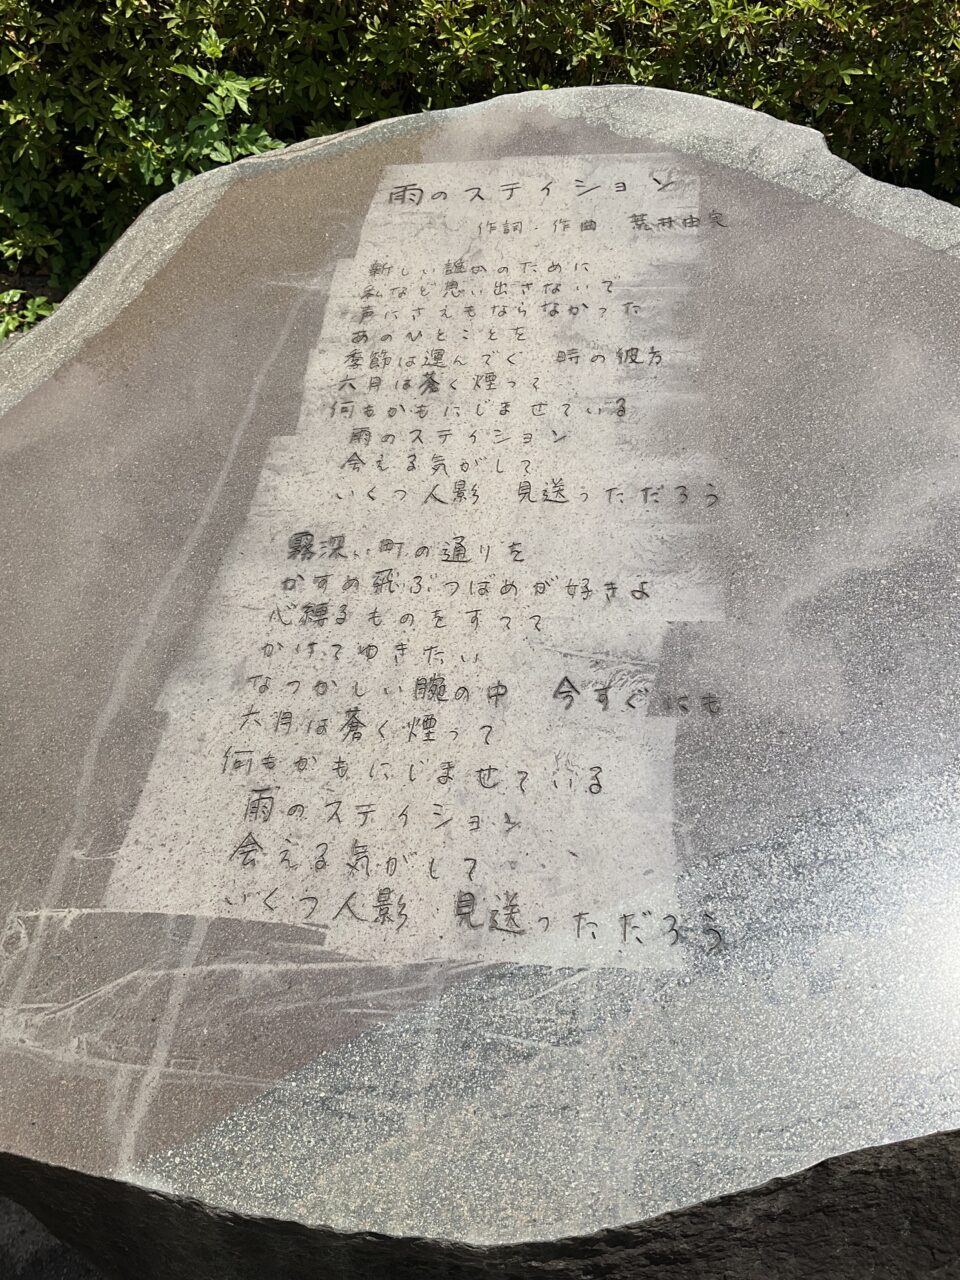 雨のステイション
作詞・作曲 荒井由実
新しい誰かのために
私など思い出さないで
声にさえもならなかった
あのひとことを
季節は運んでく 時の彼方
六月は蒼く煙って
何もかもにじませている
雨のステイション
会える気がして
いくつ人影 見送っただろう
霧深い町の通りを
かすめ飛ぶつばめが好きよ
心縛るものをすてて
かけてゆきたい
なつかしい腕の中 今すぐにも
六月は蒼く煙って
何もかもにじませている
雨のステイション
会える気がして
いくつ人影 見送っただろう